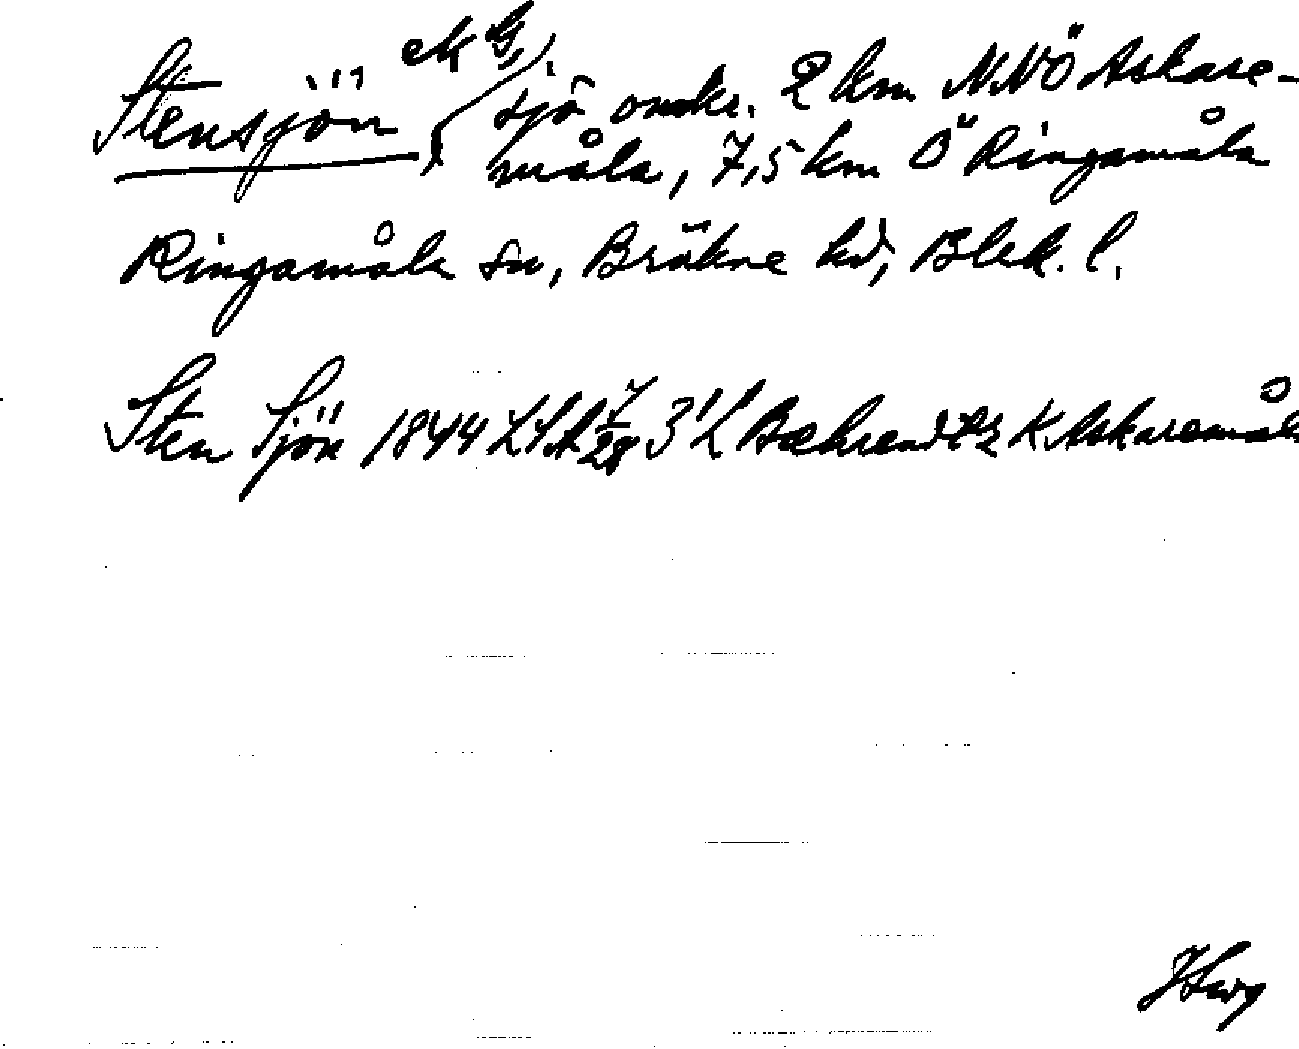 Stensjön, sjö omkr. 2 km NNÖ Askare-
måla, 7,5 km Ö Ringamåla
Ringamåla sn, Bräkne hd, Blek. l.
Sten Sjön 1844 LSA 7/28 3'L Bæhrendtz K Askaremåla